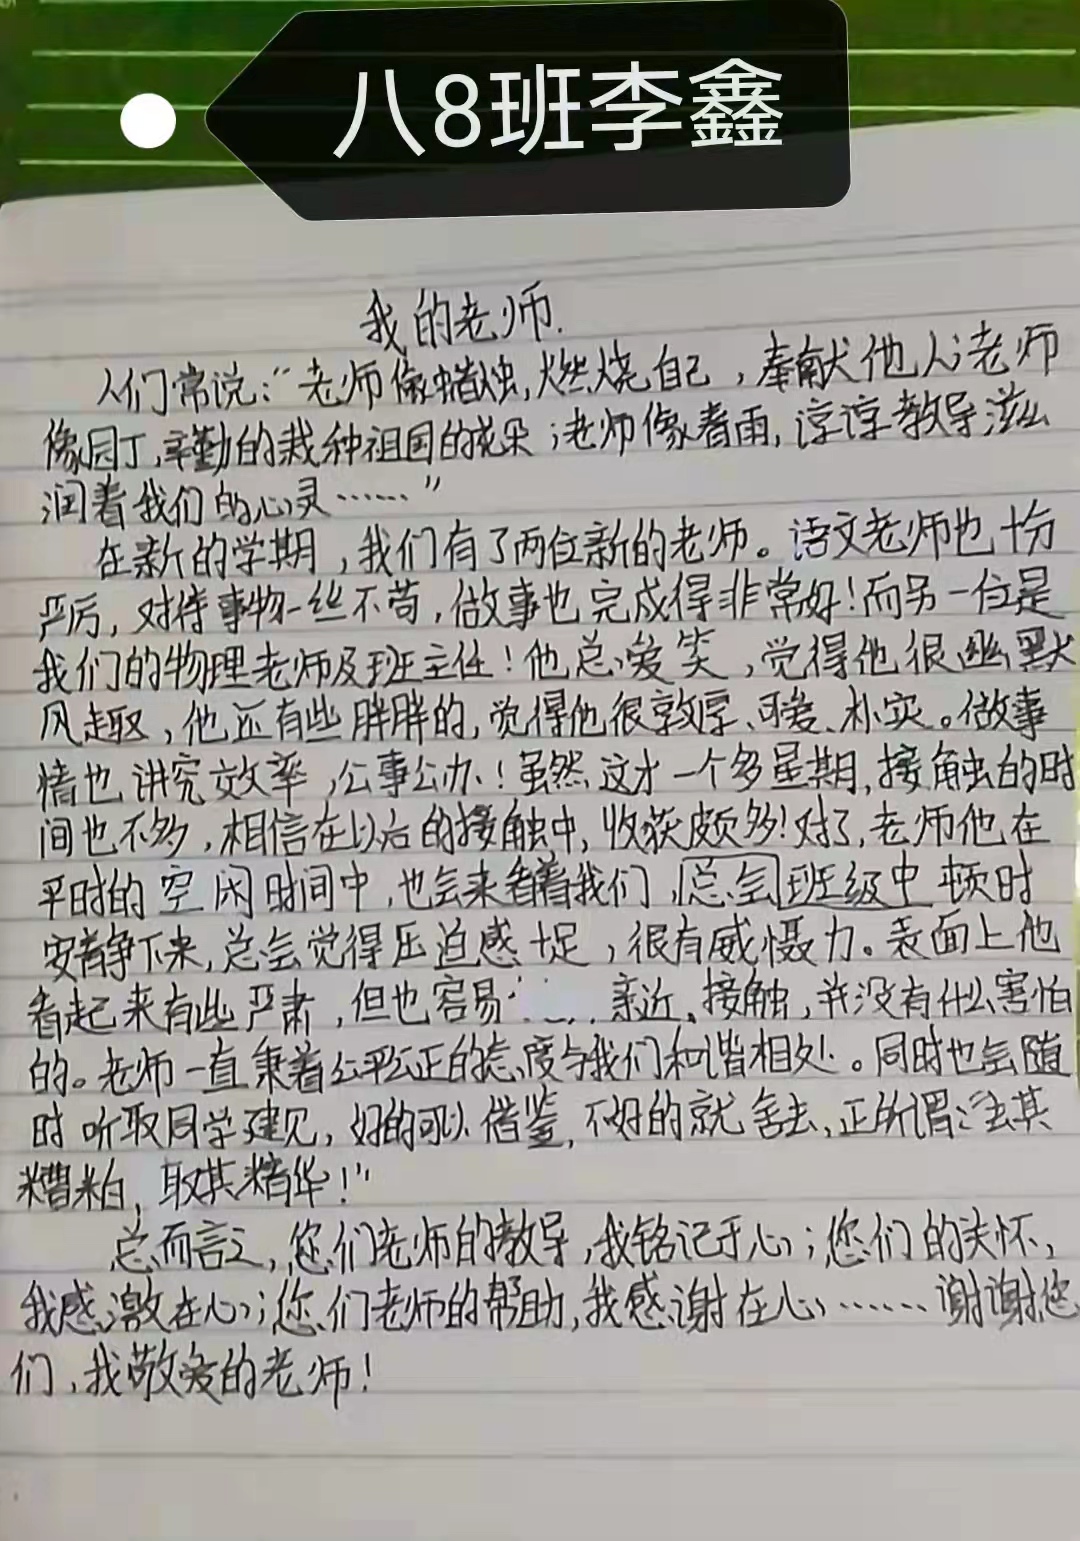 八8班李鑫
我的老师.
人们常说:“老师像蜡烛,燃烧自己,奉献他人;老师
像园丁,辛勤的栽种祖国的花朵;老师像春雨,谆谆教导滋
润着我们的心灵……”
在新的学期,我们有了两位新的老师。语文老师也十分
严厉,对待事物一丝不苟,做事也完成得非常好!而另一位是
我们的物理老师及班主任!他总爱笑,觉得他很幽默
风趣,他还有些胖胖的,觉得他很敦厚、可爱、朴实。做事
情也讲究效率,公事公办!虽然这才一个多星期,接触的时
间也不多,相信在以后的接触中,收获颇多!对了,老师他在
平时的空闲时间中,也会来看着我们,总会班级中顿时
安静下来,总会觉得压迫感十足,很有威慑力。表面上他
看起来有些严肃,但也容易亲近、接触,并没有什么害怕
的。老师一直秉着公平公正的态度与我们和谐相处。同时也会随
时听取同学建见,好的可以借鉴,不好的就舍去,正所谓:“去其
糟粕,取其精华!”
总而言之,您们老师的教导,我铭记于心;您们的关怀,
我感激在心;您们老师的帮助,我感谢在心……谢谢您
们,我敬爱的老师!